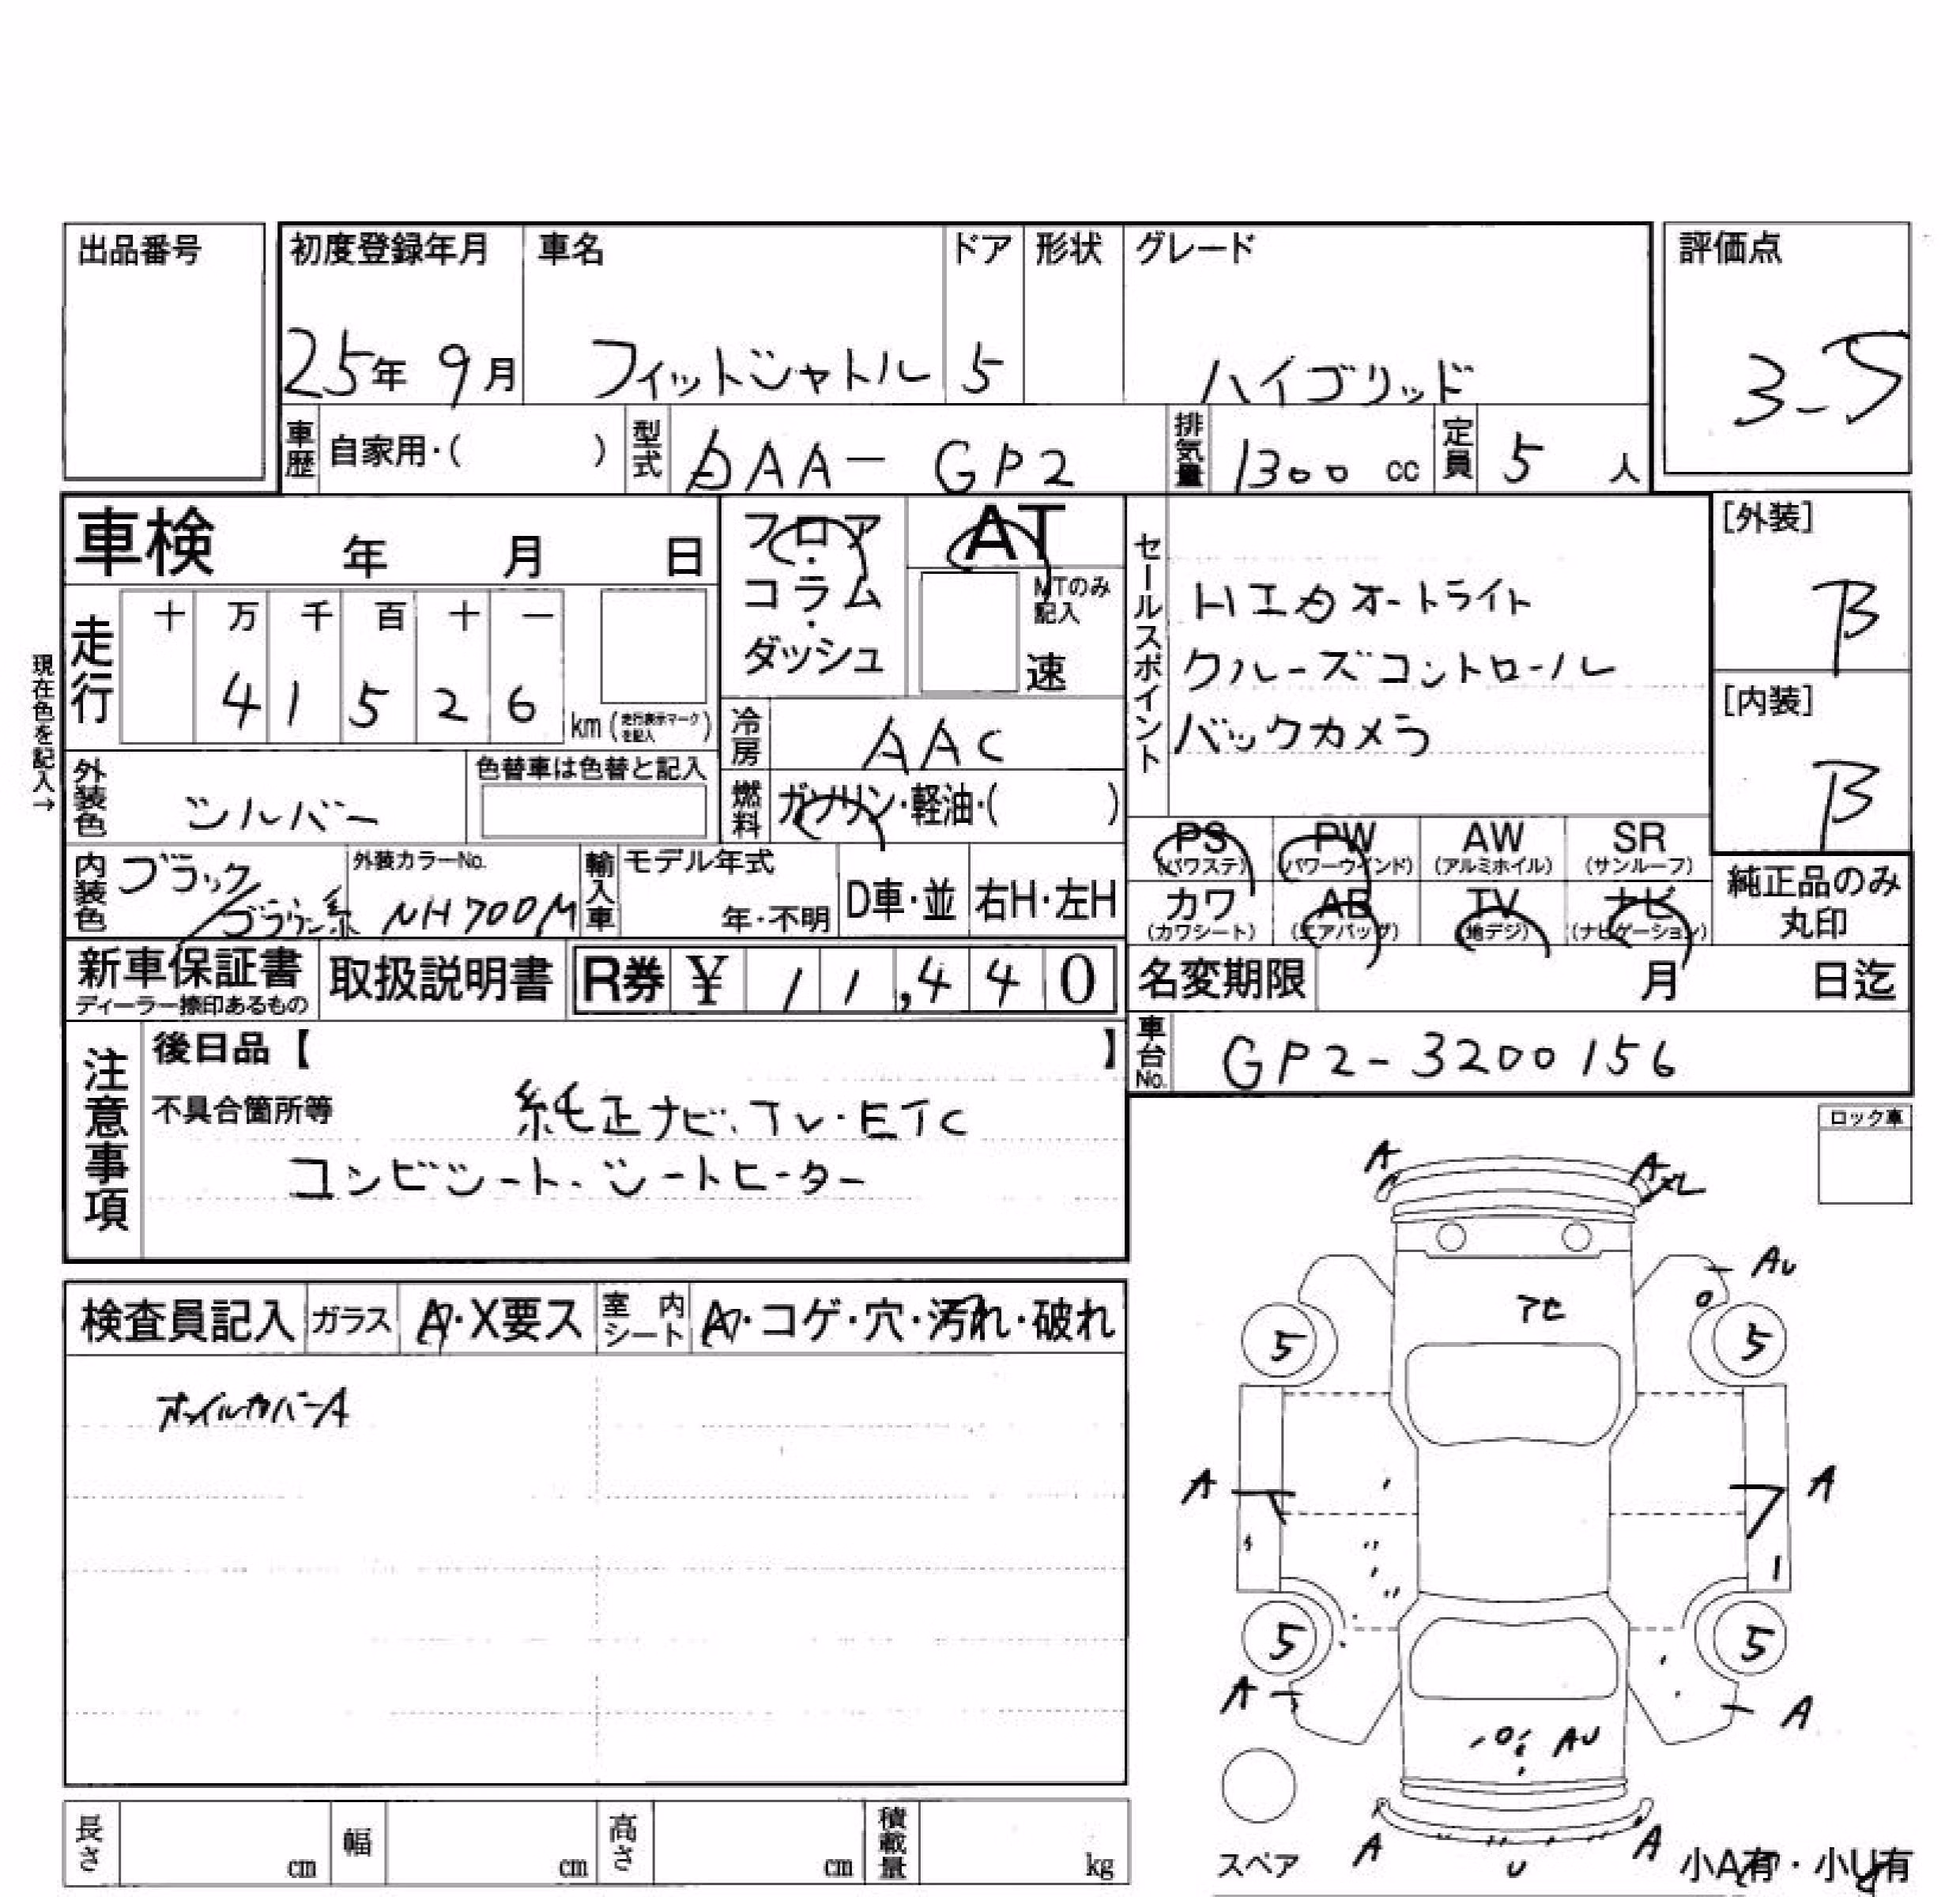 出品番号
初度登録年月 車名 ドア 形状 グレード 評価点
25年 9月 フィットシャトル 5 ハイブリッド 3-5
車歴 自家用・( ) 型式 DAA- GP2 排気量 1300 cc 定員 5 人
車検 年 月 日
フロア・コラム・ダッシュ
AT
MTのみ記入
速
セールスポイント
HID オートライト
クルーズコントロール
バックカメラ
[外装]
B
[内装]
B
現在色を記入→
走行 十 万 千 百 十 一
4 1 5 2 6 km (走行表示マークを記入)
冷房 AAC
燃料 ガソリン・軽油・( )
外装色 シルバー 色替車は色替と記入
内装色 ブラック/ブラウン系 外装カラーNo. NH700M 輸入車 モデル年式 年・不明 D車・並 右H・左H
PS (パワステ) PW (パワーウインド) AW (アルミホイル) SR (サンルーフ)
カワ (カワシート) AB (エアバッグ) TV (地デジ) ナビ (ナビゲーション)
純正品のみ丸印
新車保証書 ディーラー捺印あるもの 取扱説明書 R券 ¥ 11,440
名変期限 月 日迄
車台No. GP2-3200156
注意事項
後日品【 】
不具合箇所等 純正ナビ・TV・ETC
コンビシート・シートヒーター
ロック車
検査員記入 ガラス A・X要ス 室内シート A・コゲ・穴・汚れ・破れ
ホイルカバーA
A A
AU
アE
5 5
A A
5 5
A A
AU
A U A
スペア
小A有・小U有
長さ cm 幅 cm 高さ cm 積載量 kg